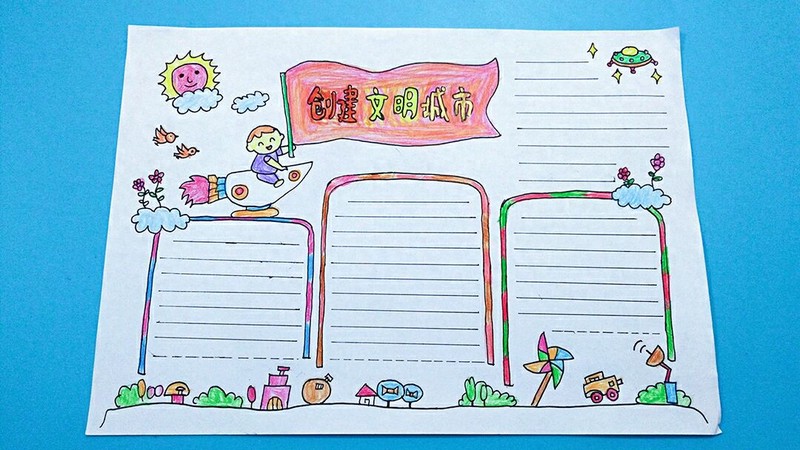 创建文明城市